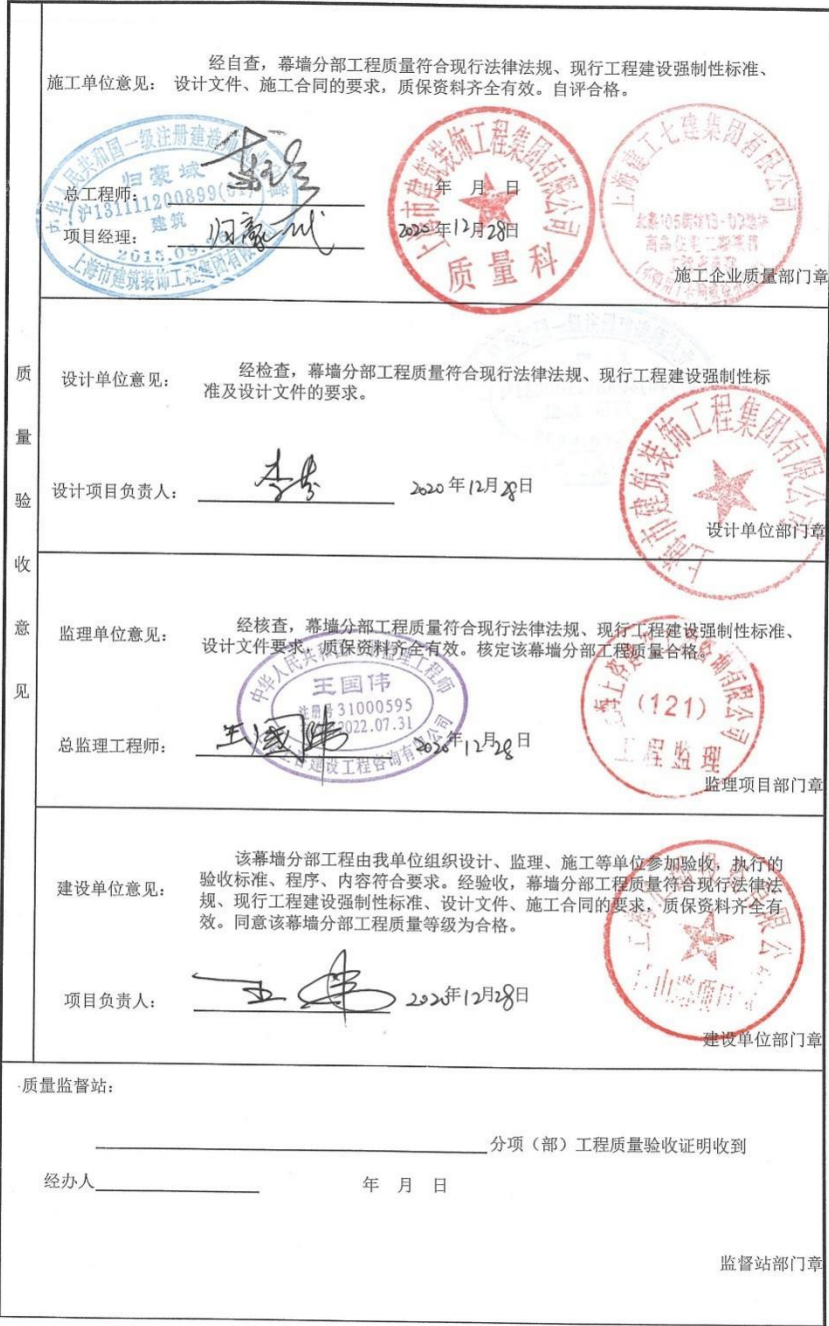 经自查，幕墙分部工程质量符合现行法律法规、现行工程建设强制性标准、
施工单位意见： 设计文件、施工合同的要求，质保资料齐全有效。自评合格。
中华人民共和国一级注册建造师
归豪域
沪131111200899(01)
建筑
2015.09.
上海市建筑装饰工程集团有限公司
总工程师： 年 月 日
项目经理： 归豪域 2020年12月28日
上海市建筑装饰工程集团有限公司
质量科
上海建工七建集团有限公司
施工企业质量部门章
质量验收意见
设计单位意见： 经检查，幕墙分部工程质量符合现行法律法规、现行工程建设强制性标
准及设计文件的要求。
设计项目负责人： 2020年12月28日
上海市建筑装饰工程集团有限公司
设计单位部门章
监理单位意见： 经核查，幕墙分部工程质量符合现行法律法规、现行工程建设强制性标准、
设计文件要求，质保资料齐全有效。核定该幕墙分部工程质量合格。
中华人民共和国注册监理工程师
王国伟
注册号31000595
2022.07.31
建设工程咨询有限公司
总监理工程师： 王國伟 2020年12月28日
(121)
工程监理
监理项目部门章
该幕墙分部工程由我单位组织设计、监理、施工等单位参加验收，执行的
建设单位意见： 验收标准、程序、内容符合要求。经验收，幕墙分部工程质量符合现行法律法
规、现行工程建设强制性标准、设计文件、施工合同的要求，质保资料齐全有
效。同意该幕墙分部工程质量等级为合格。
项目负责人： 王伟 2020年12月28日
建设单位部门章
质量监督站：
分项（部）工程质量验收证明收到
经办人 年 月 日
监督站部门章